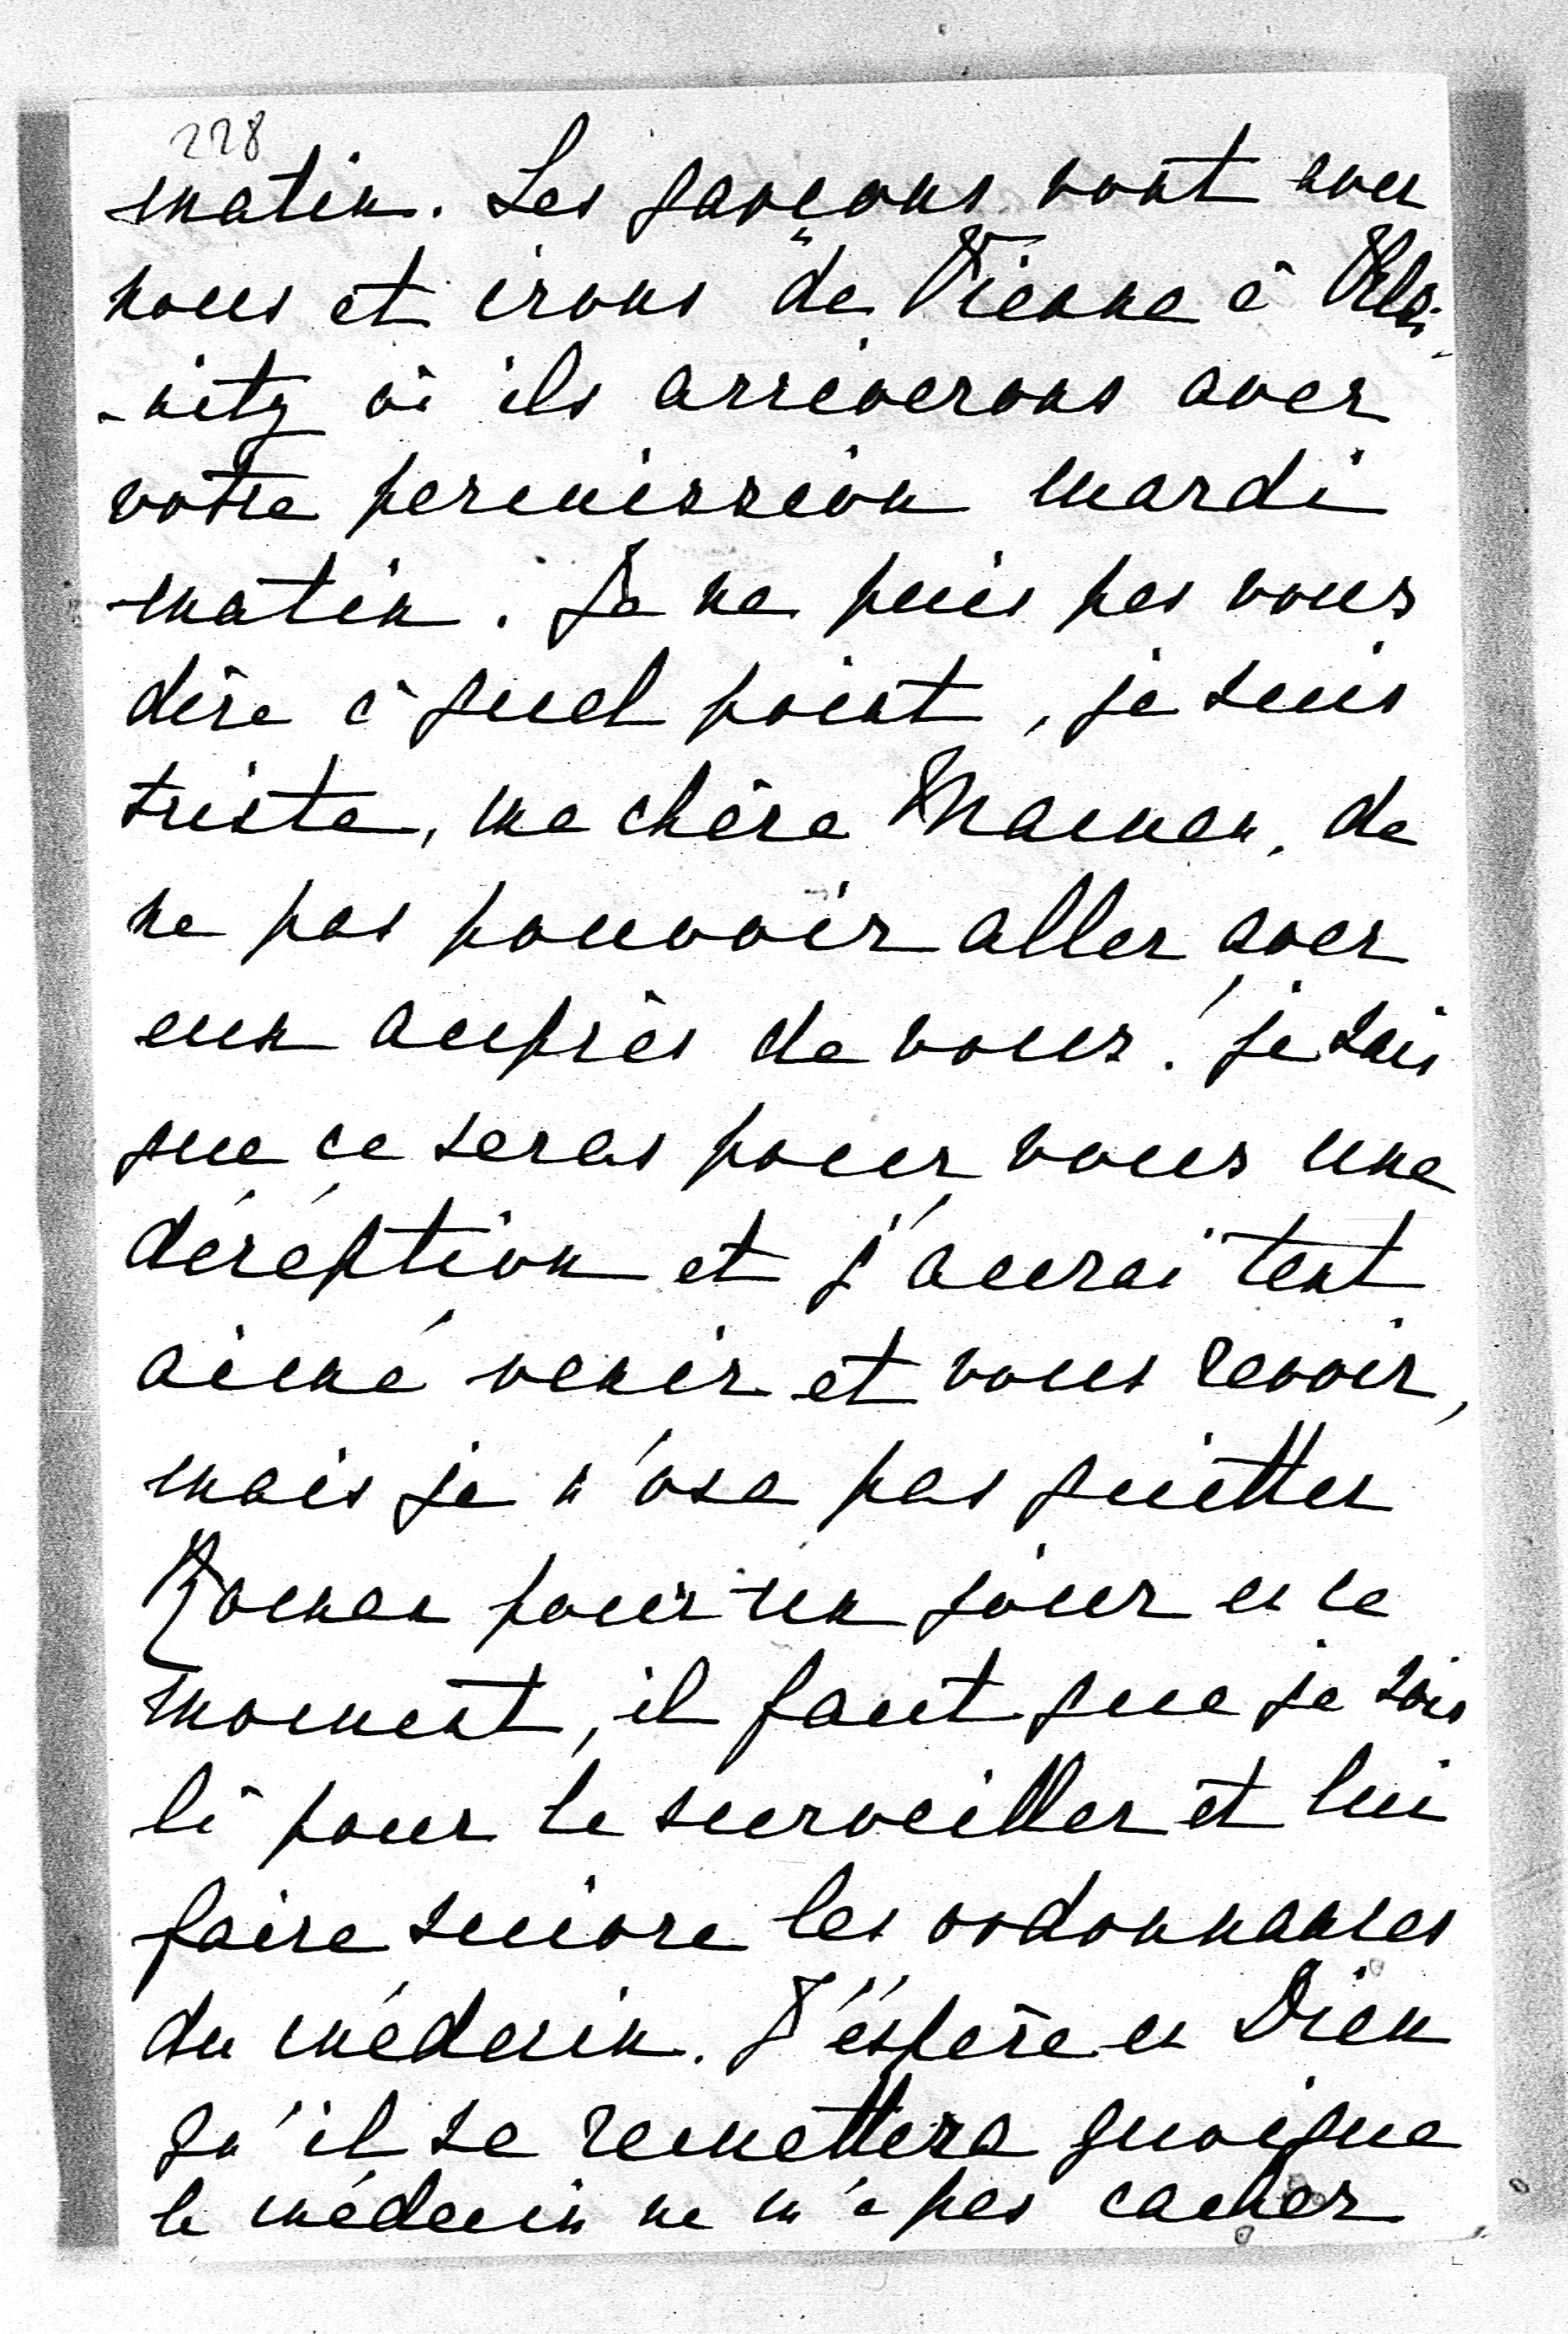 228
matin. Les garçons vont avec
nous et irons de Vienne à
-nitz où ils arriverons avec
votre permission mardi
matin. Je ne puis pas vous
dire à quel point, je suis
triste, ma chère Maman, de
ne pas pouvoir aller avec
eux auprès de vous! je sais
que ce seras pour vous une
décéption et j'aurai tant
aimé venir et vous revoir,
mais je n'ose pas quitter
Roman pour un jour en ce
moment, il faut que je sois
là pour le surveiller et lui
faire suivre les ordonnances
du médecin. J'éspère en Dieu
qu'il se remettera quoique
le médecin ne m'a pas cacher